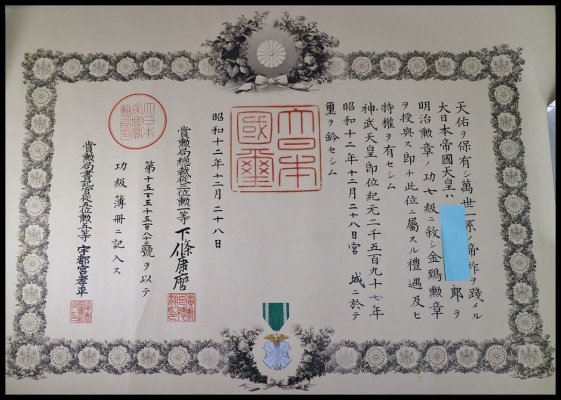 天佑ヲ保有シ萬世一系ノ帝祚ヲ踐メル
大日本帝國天皇ハ
郎ヲ
明治勲章ノ功七級ニ敘シ金鵄勲章
ヲ授與ス即チ此位ニ屬スル禮遇及ヒ
特權ヲ有セシム
神武天皇即位紀元二千五百九十七年
昭和十二年十二月二十八日宮城ニ於テ
璽ヲ鈐セシム
大日本國璽
昭和十二年十二月二十八日
賞勲局總裁從三位勲一等 下條康麿
號ヲ以テ
功級簿冊ニ記入ス
賞勲局書記官從五位勲五等 宇都宮孝平